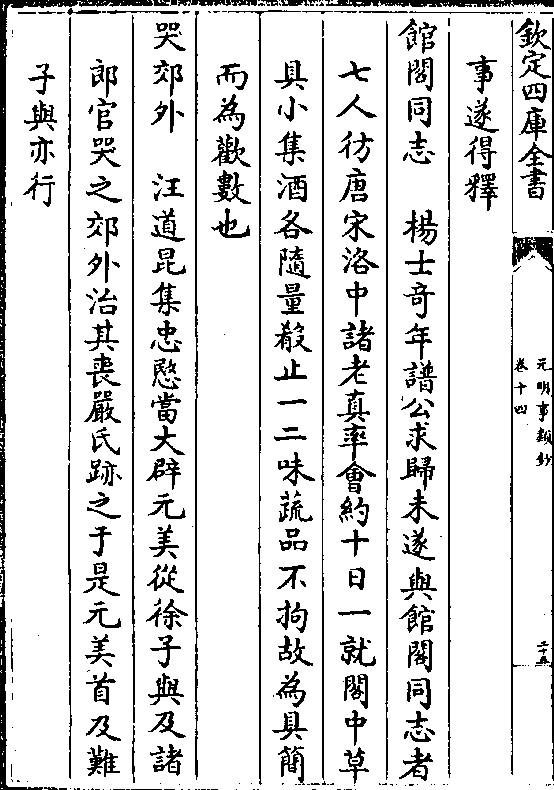 欽定四庫全書
元明事類鈔
卷十四
二十五
事遂得釋
館閣同志　楊士奇年譜公求歸未遂與館閣同志者
七人彷唐宋洛中諸老真率會約十日一就閣中草
具小集酒各隨量殽止一二味蔬品不拘故為具簡
而為歡數也
哭郊外　汪道昆集忠愍當大辟元美從徐子與及諸
郎官哭之郊外治其喪嚴氏跡之于是元美首及難
子與亦行